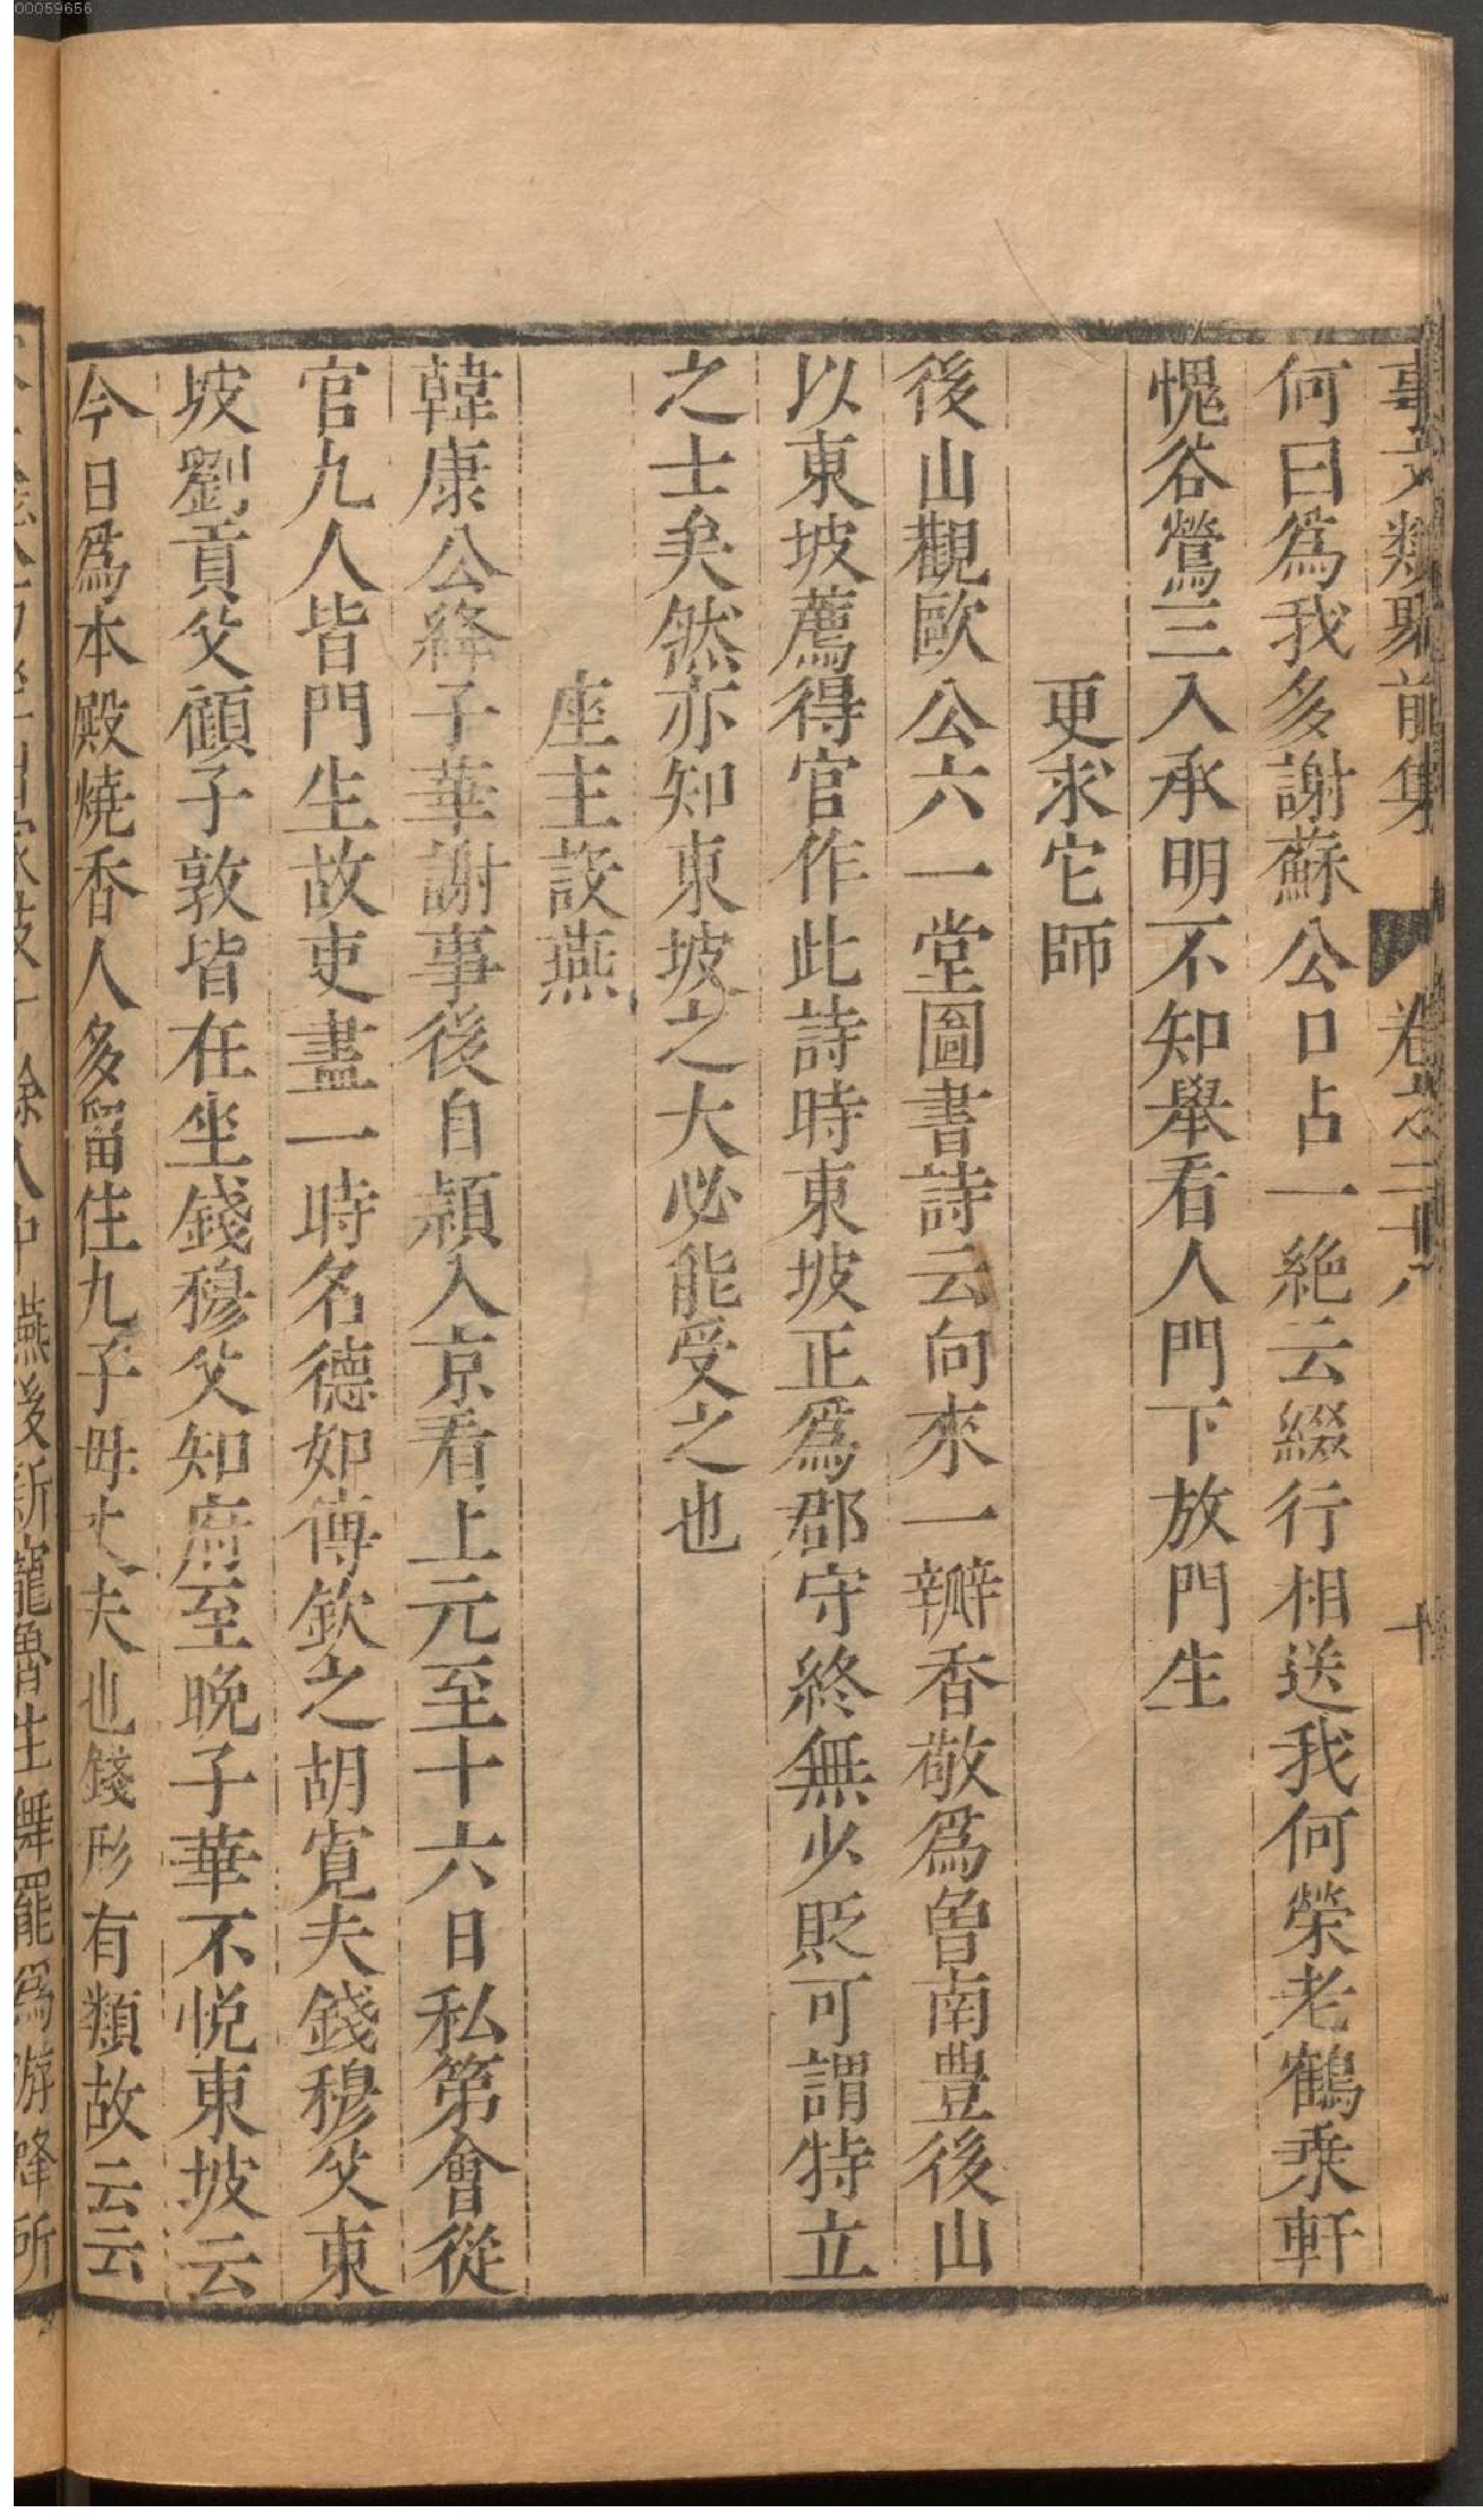 00059656
事文類聚前集 卷之二十八 十
何曰爲我多謝蘇公口占一絶云綴行相送我何榮老鶴乗軒
愧谷鶯三入承明不知舉看人門下放門生
更求它師
後山觀歐公六一堂圖書詩云向來一瓣香敬爲曾南豊後山
以東坡薦得官作此詩時東坡正爲郡守終無少貶可謂特立
之士矣然亦知東坡之大必能受之也
座主設燕
韓康公絳子華謝事後自潁入京看上元至十六日私第會從
官九人皆門生故吏盡一時名德如傅欽之胡寬夫錢穆父東
坡劉貢父顧子敦皆在坐錢穆父知府至晚子華不悅東坡云
今日爲本殿燒香人多留住九子母丈夫也錢形有類故云云
餘人中燕後新寵魯生舞罷爲游蜂所